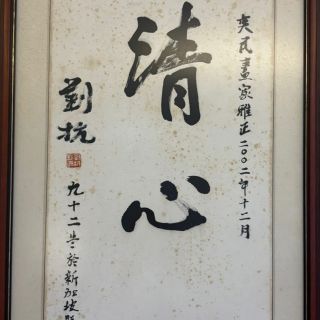 奕民畫家雅正二〇〇二年十二月
清心
劉抗
九十二岁於新加坡